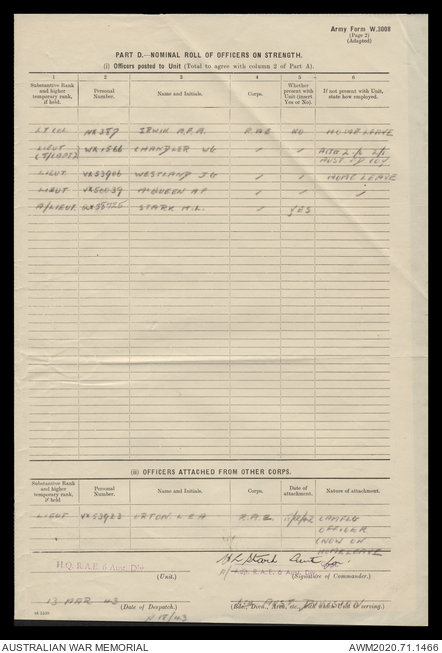 Army Form W.3008
(Page 2)
(Adapted)
PART D.—NOMINAL ROLL OF OFFICERS ON STRENGTH.
(i) Officers posted to Unit (Total to agree with column 2 of Part A).
1 2 3 4 5 6
Substantive Rank and higher temporary rank, if held. Personal Number. Name and Initials. Corps. Whether present with Unit (insert Yes or No). If not present with Unit, state how employed.
LT COL IRWIN A.F.A. R.A.E NO HOME LEAVE
LIEUT (T/CAPT) WX1566 CHANDLER WG " "
LIEUT VX53906 WESTLAND J G " " HOME LEAVE
LIEUT VX50039 McQUEEN A F " " "
A/LIEUT STARK H.L. " YES
(ii) OFFICERS ATTACHED FROM OTHER CORPS.
Substantive Rank and higher temporary rank, if held Personal Number. Name and Initials. Corps. Date of attachment. Nature of attachment.
LIEUT VX53923 ORTON L E A R.A.E. CAMFLG
OFFICER
(NOW ON
HOME LEAVE
H L Stark
H.Q. R.A.E. 6 Aust. Div.
(Unit.) (Signature of Commander.)
13 MAR 43
(Date of Despatch.) (Bde., Divn., Area, etc., with which Unit is serving.)